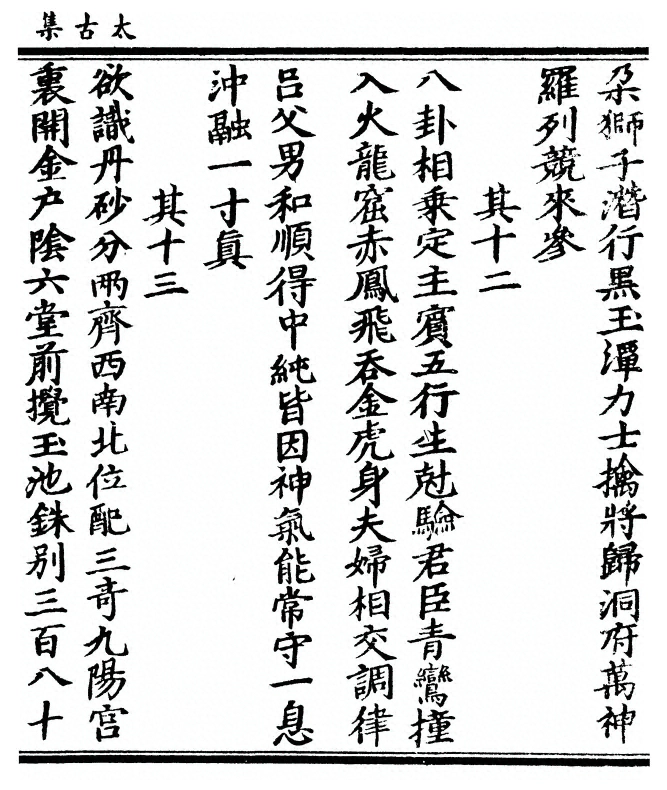 太古集
朶獅子潛行黑玉潭力士擒將歸洞府萬神
羅列競來參
其十二
八卦相乘定主賓五行生尅驗君臣青鸞撞
入火龍窟赤鳳飛吞金虎身夫婦相交調律
呂父男和順得中純皆因神氣能常守一息
沖融一寸眞
其十三
欲識丹砂分兩齊西南北位配三奇九陽宮
裏開金户隂六堂前攪玉池銖别三百八十